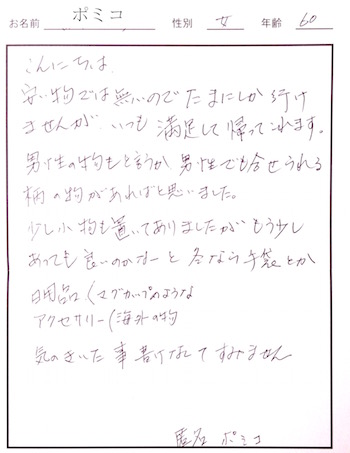 お名前 ポミコ 性別 女 年齢 60
こんにちは、
安い物では無いのでたまにしか行け
ませんが いつも 満足して帰ってこれます。
男性の物もと言うか 男性でも合せられる
柄の物があればと思いました。
少し小物も置いてありましたがもう少し
あっても良いのかなーと 冬なら手袋とか
日用品(マグカップのような
アクセサリー(海外の物
気のきいた事書けなくてすみません
匿名 ポミコ